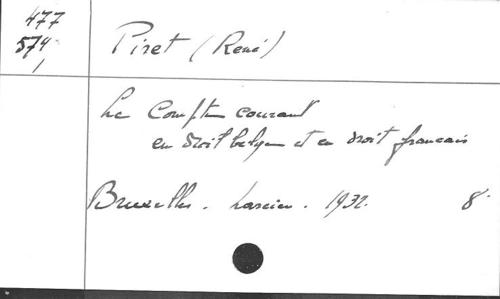 477
574
1
Piret (René)
Le Compte courant
en droit belge et en droit francais
Bruxelles. Larcier. 1932. 8°